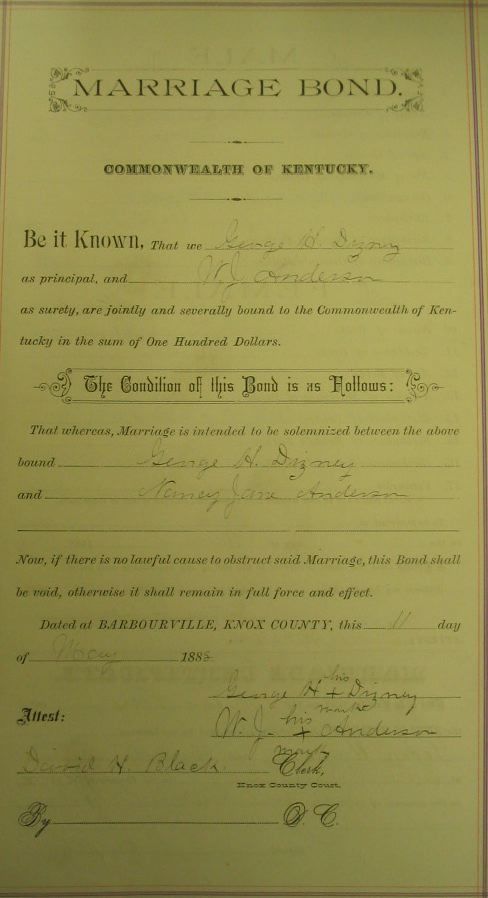 MARRIAGE BOND.
COMMONWEALTH OF KENTUCKY.
Be it Known, That we George H. Dizney
as principal, and W. J. Anderson
as surety, are jointly and severally bound to the Commonwealth of Ken-
tucky in the sum of One Hundred Dollars.
The Condition of this Bond is as Follows:
That whereas, Marriage is intended to be solemnized between the above
bound George H. Dizney
and Nancy Jane Anderson
Now, if there is no lawful cause to obstruct said Marriage, this Bond shall
be void, otherwise it shall remain in full force and effect.
Dated at BARBOURVILLE, KNOX COUNTY, this 11 day
of May 188
his
George H + Dizney
mark
Attest:
his
W. J. + Anderson
mark
David H. Black Clerk,
Knox County Court.
By D. C.